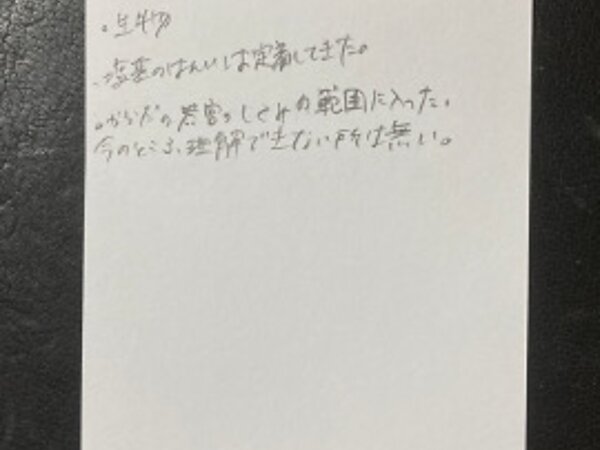 ・生物
・塩基のはんいは定着してきた。
・からだの器官のしくみの範囲に入った。
今のところ、理解できない所は無い。